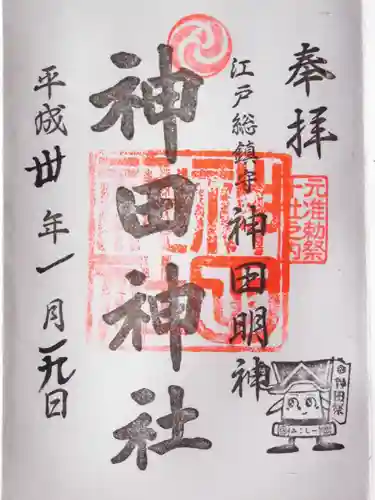 奉拝
元准勅祭
十社之内
江戸総鎮守 神田明神
神田神社
平成卅年一月十九日
神田祭
みこしー